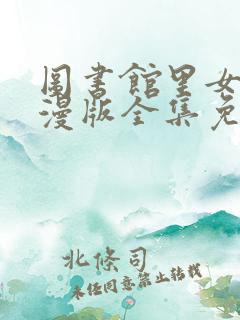 圖書館里女
漫版全集免
北條司
未经同意禁止转载